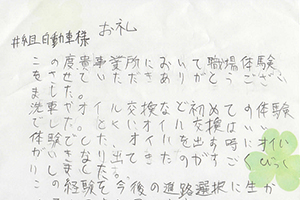 お礼
井組自動車様
この度貴事業所において職場体験
をさせていただきありがとうござい
ました。
洗車やオイル交換など初めての体験
でした。とくにオイル交換はいい
体験でした、オイルを出す時にオイル
がいきなり出てきたのがすごくびっく
りしました。
この経験を今後の進路選択に生か